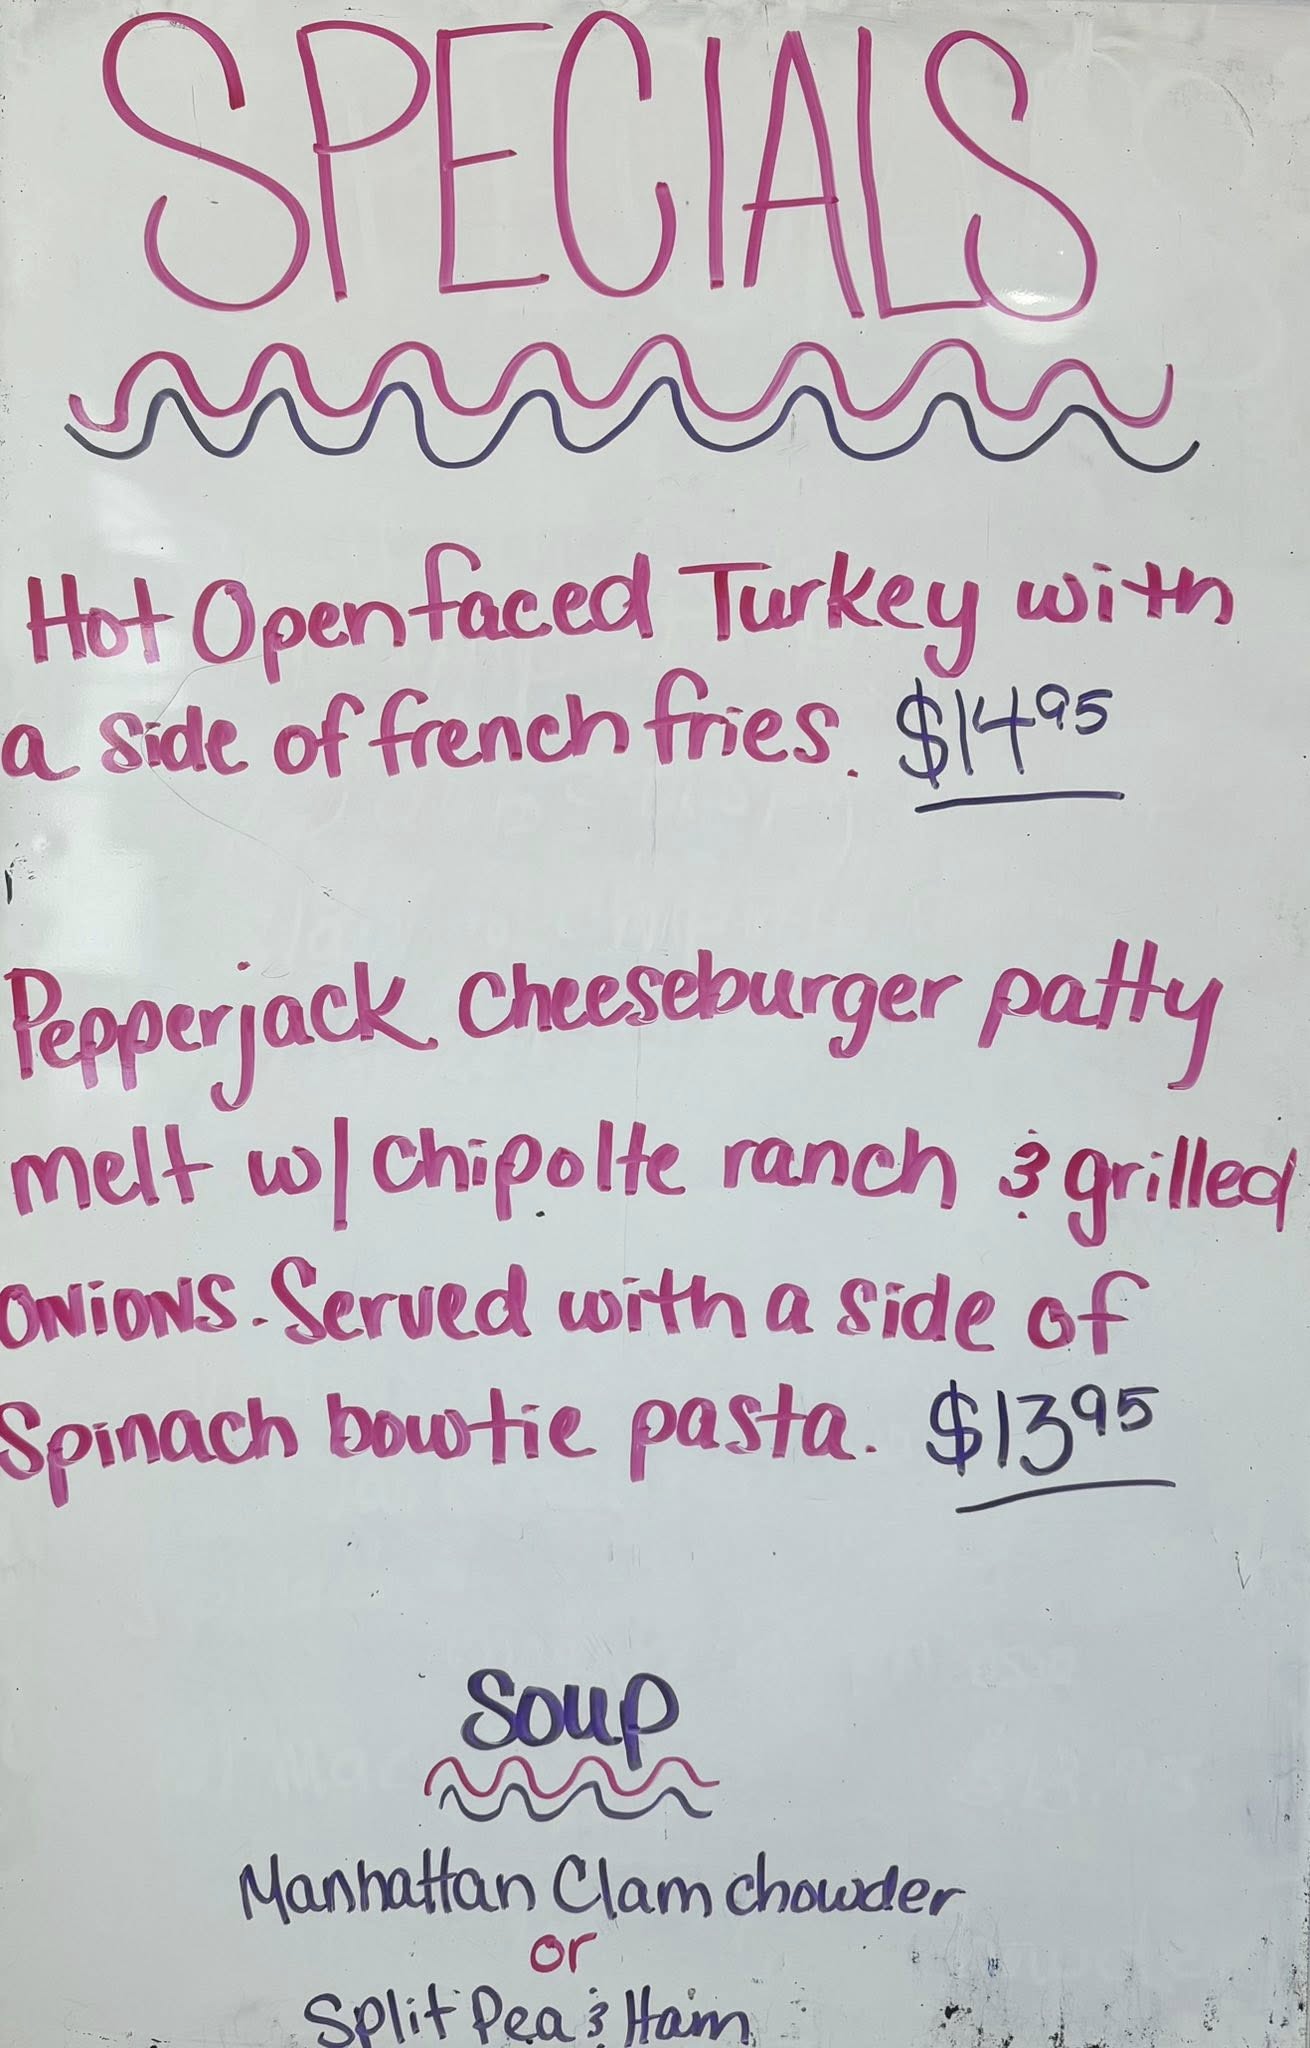 SPECIALS
Hot Openfaced Turkey with
a side of french fries. $14.95
Pepperjack Cheeseburger patty
melt w/ Chipolte ranch & grilled
ONiONS. Served with a side of
Spinach bowtie pasta. $13.95
Soup
Manhattan Clam chowder
or
Split Pea & Ham